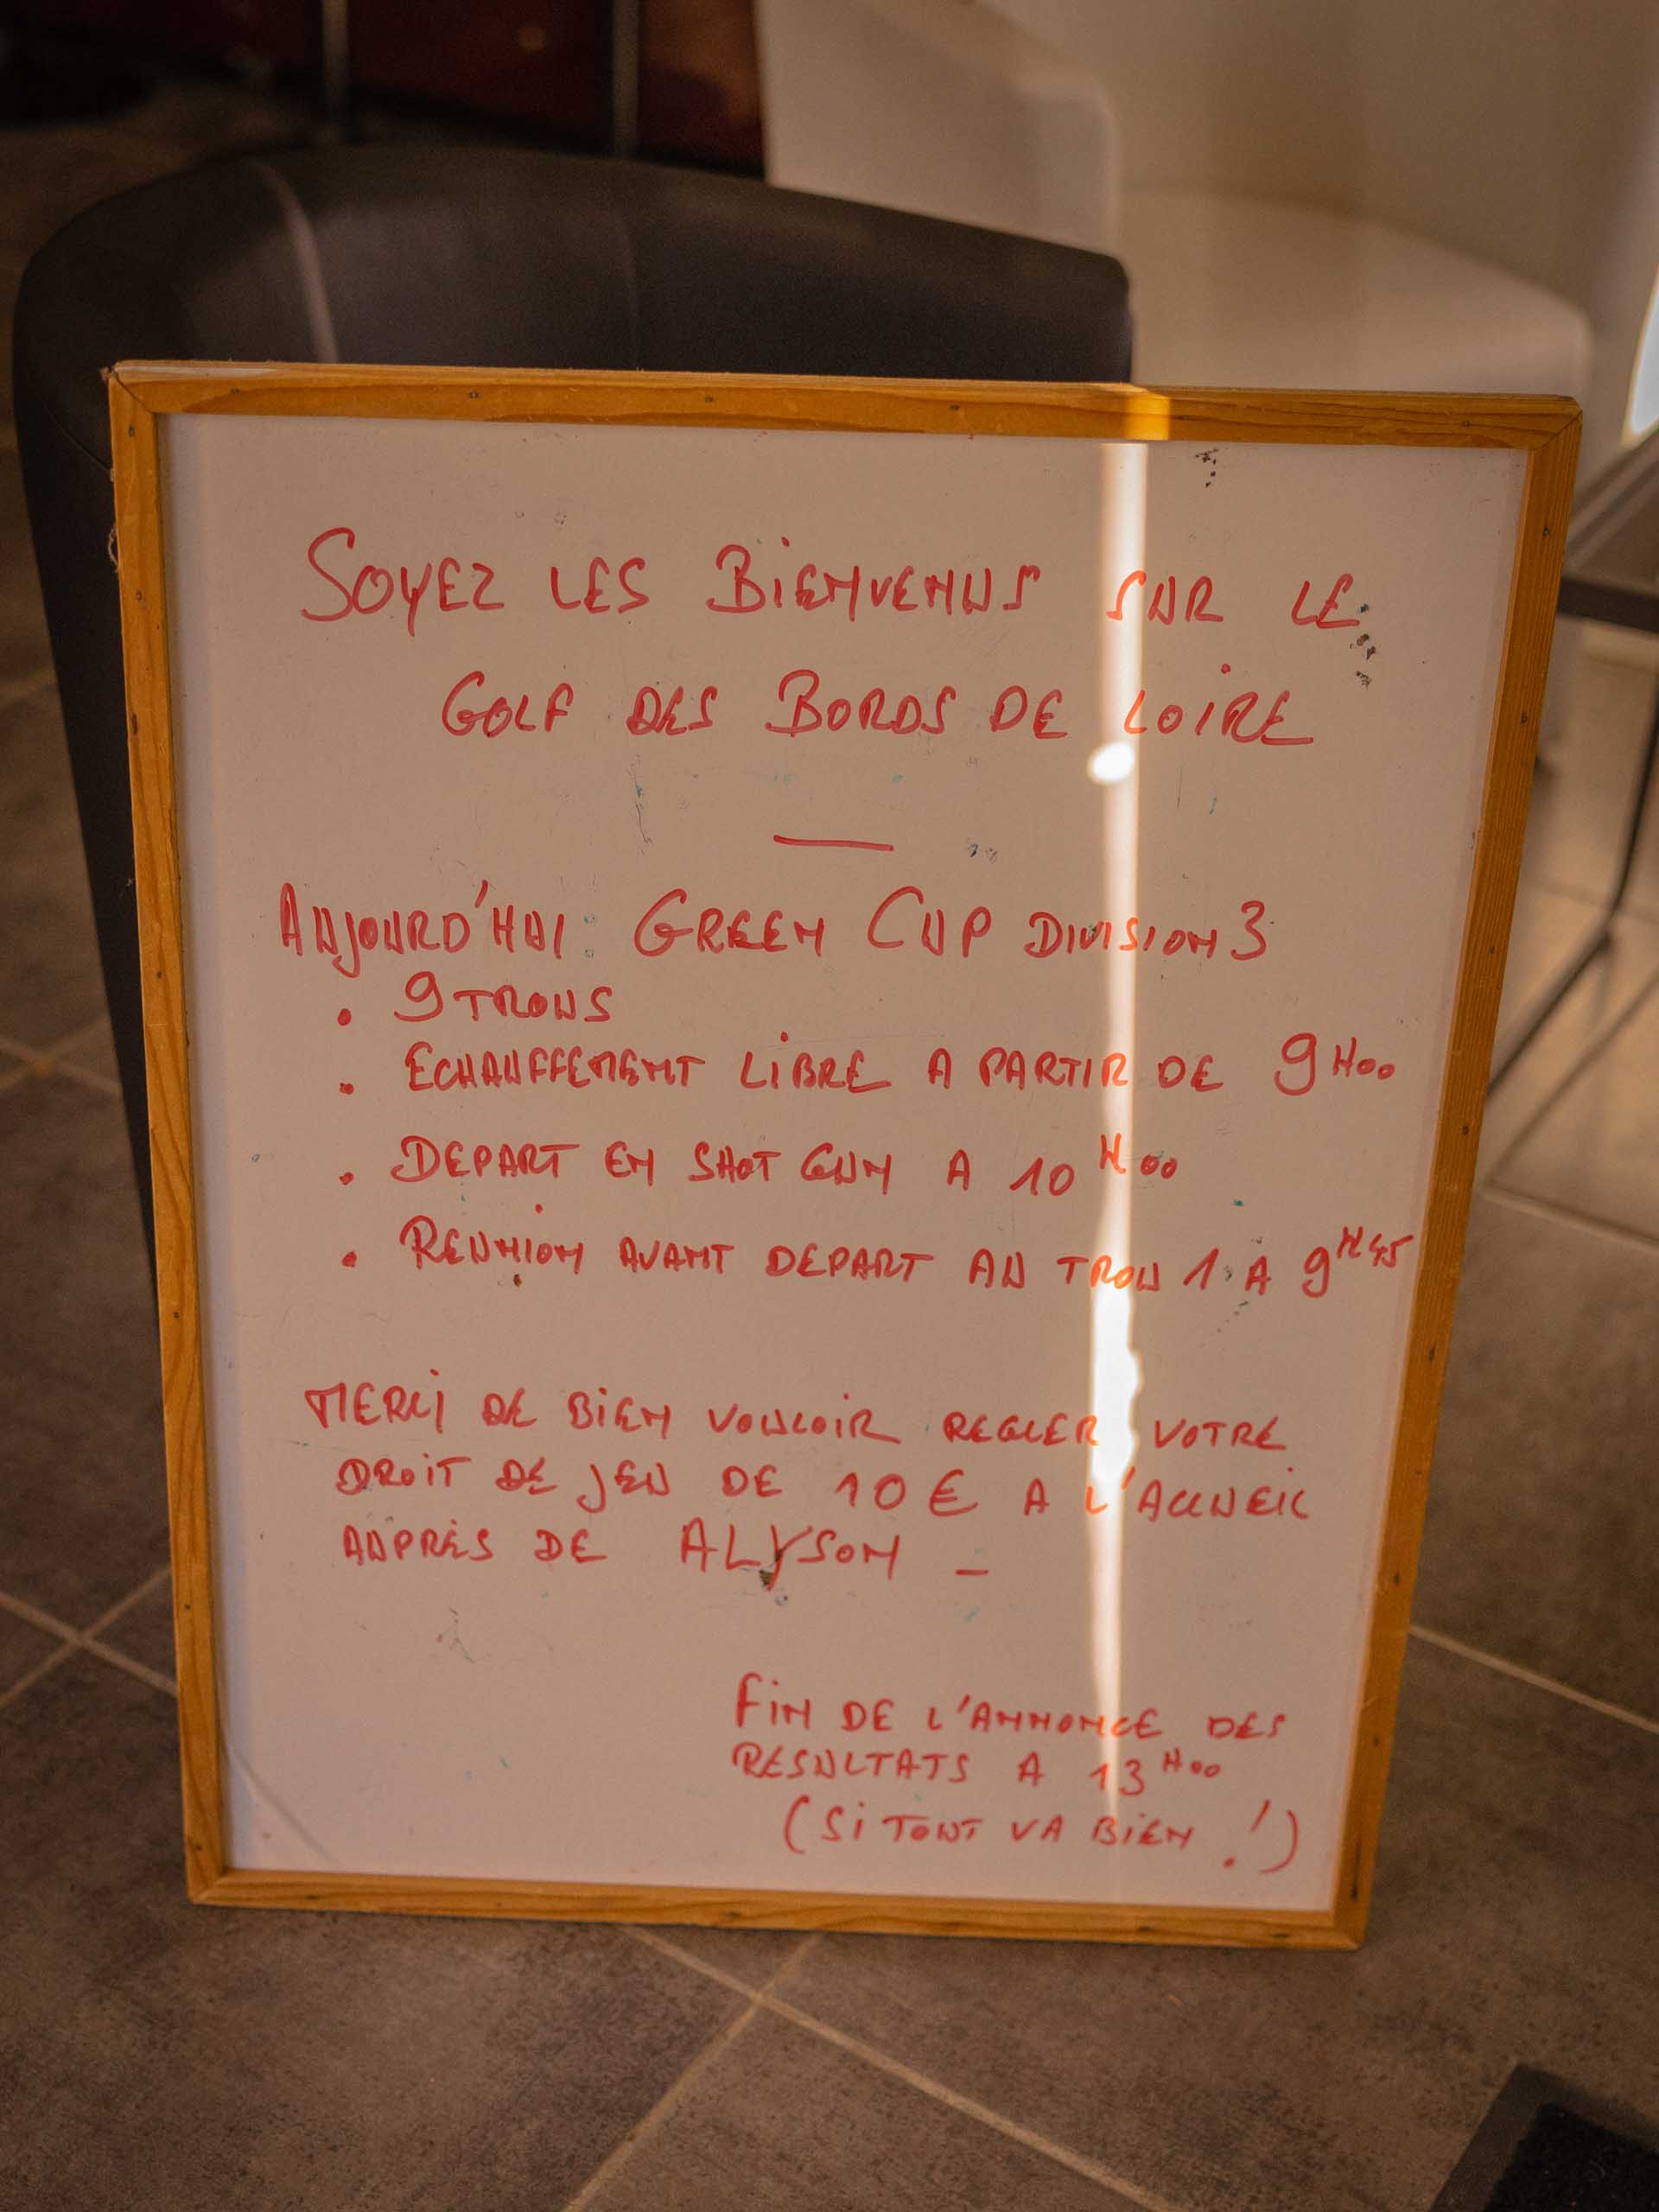 SOYEZ LES BIENVENUS SUR LE
GOLF DES BORDS DE LOIRE
AUJOURD'HUI : GREEN CUP DIVISION 3
• 9 TROUS
• ECHAUFFEMENT LIBRE A PARTIR DE 9H00
• DEPART EN SHOT GUN A 10H00
• REUNION AVANT DEPART AU TROU 1 A 9H45
MERCI DE BIEN VOULOIR REGLER VOTRE
DROIT DE JEU DE 10 € A L'ACCUEIL
AUPRÈS DE ALYSON _
FIN DE L'ANNONCE DES
RESULTATS A 13H00
(SI TOUT VA BIEN !)